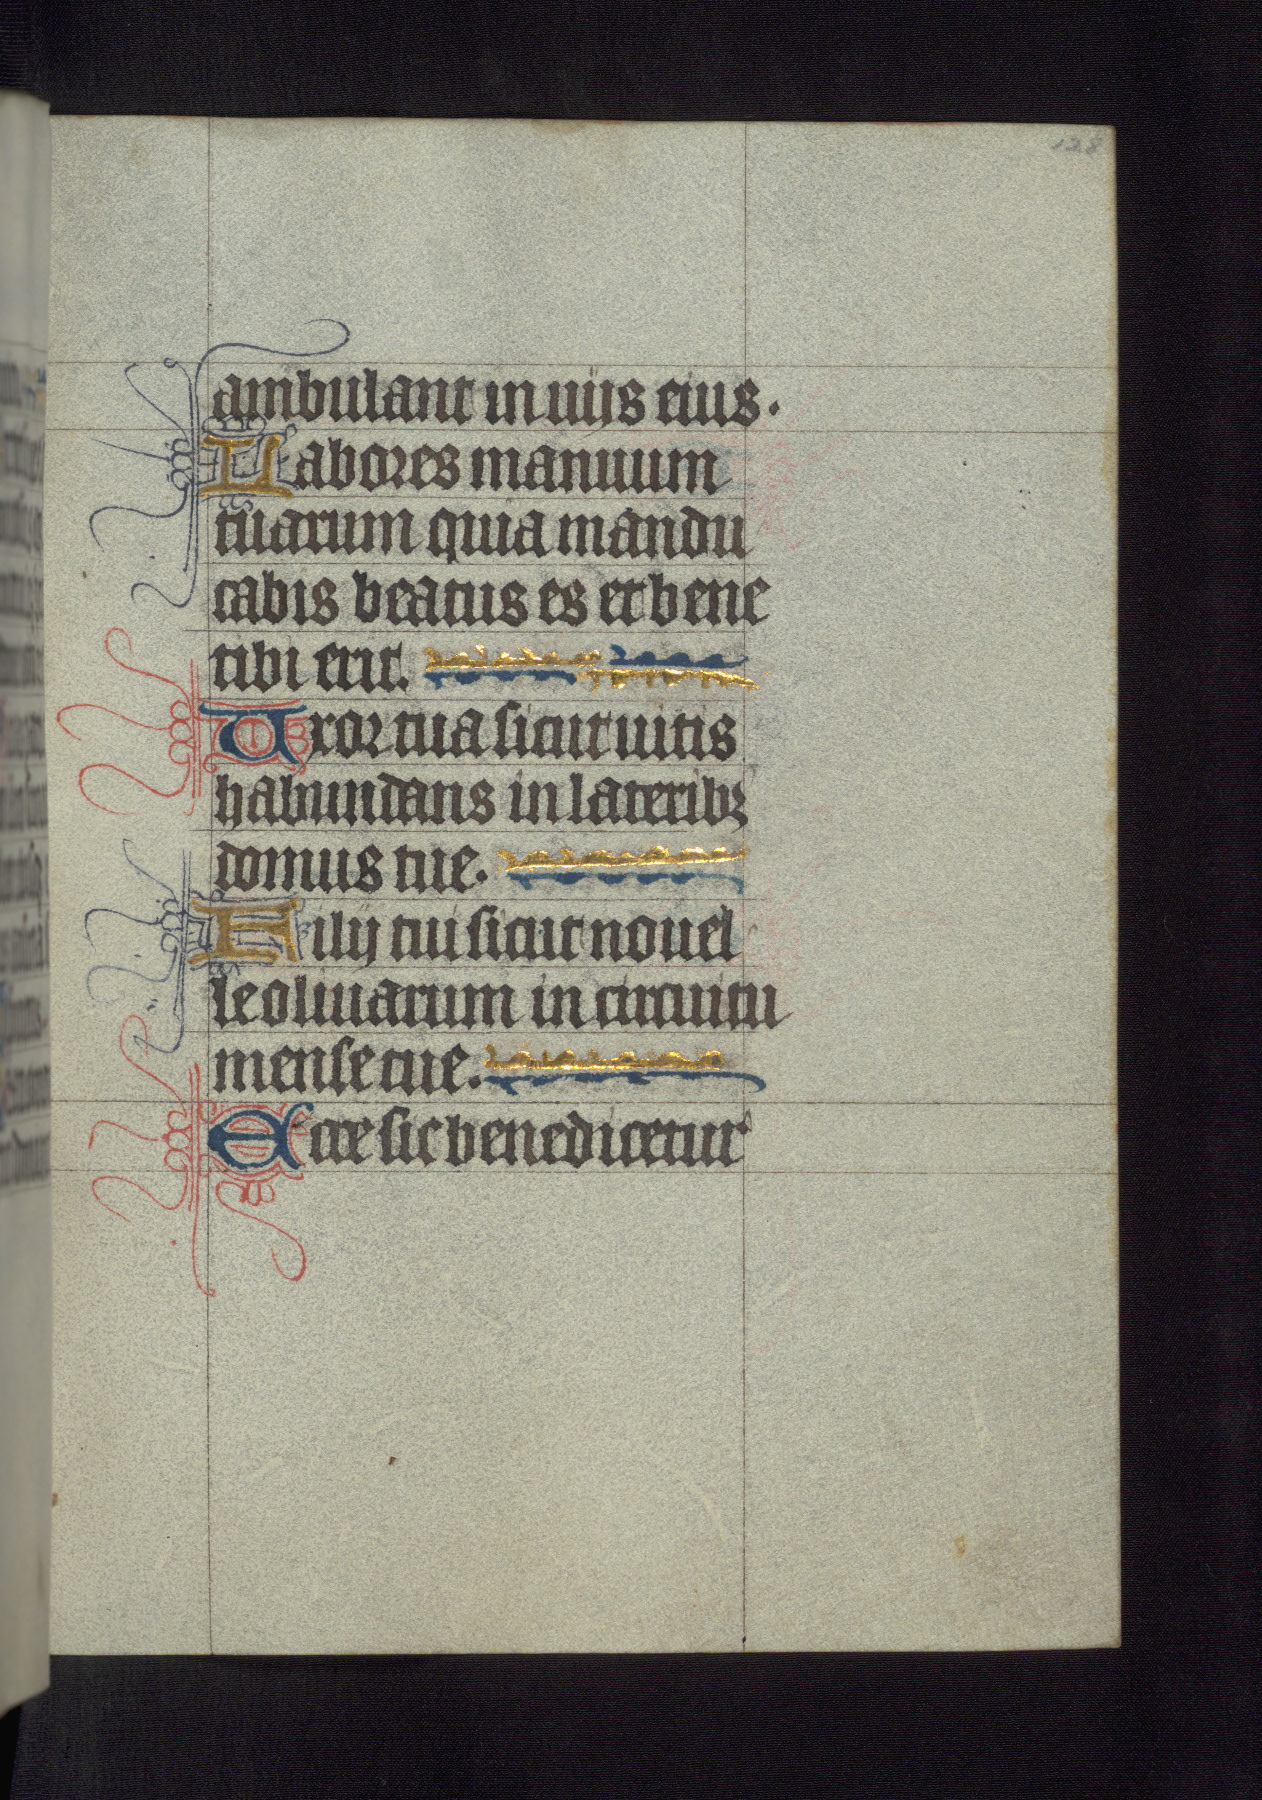 128
ambulant in uijs eius.
Labores manuum
tuarum quia mandu
cabis beatus es et bene
tibi erit.
Uxor tua sicut uitis
habundans in lateribꝫ
domus tue.
Filij tui sicut nouel
le oliuarum in circuitu
mense tue.
Ecce sic benedicetur